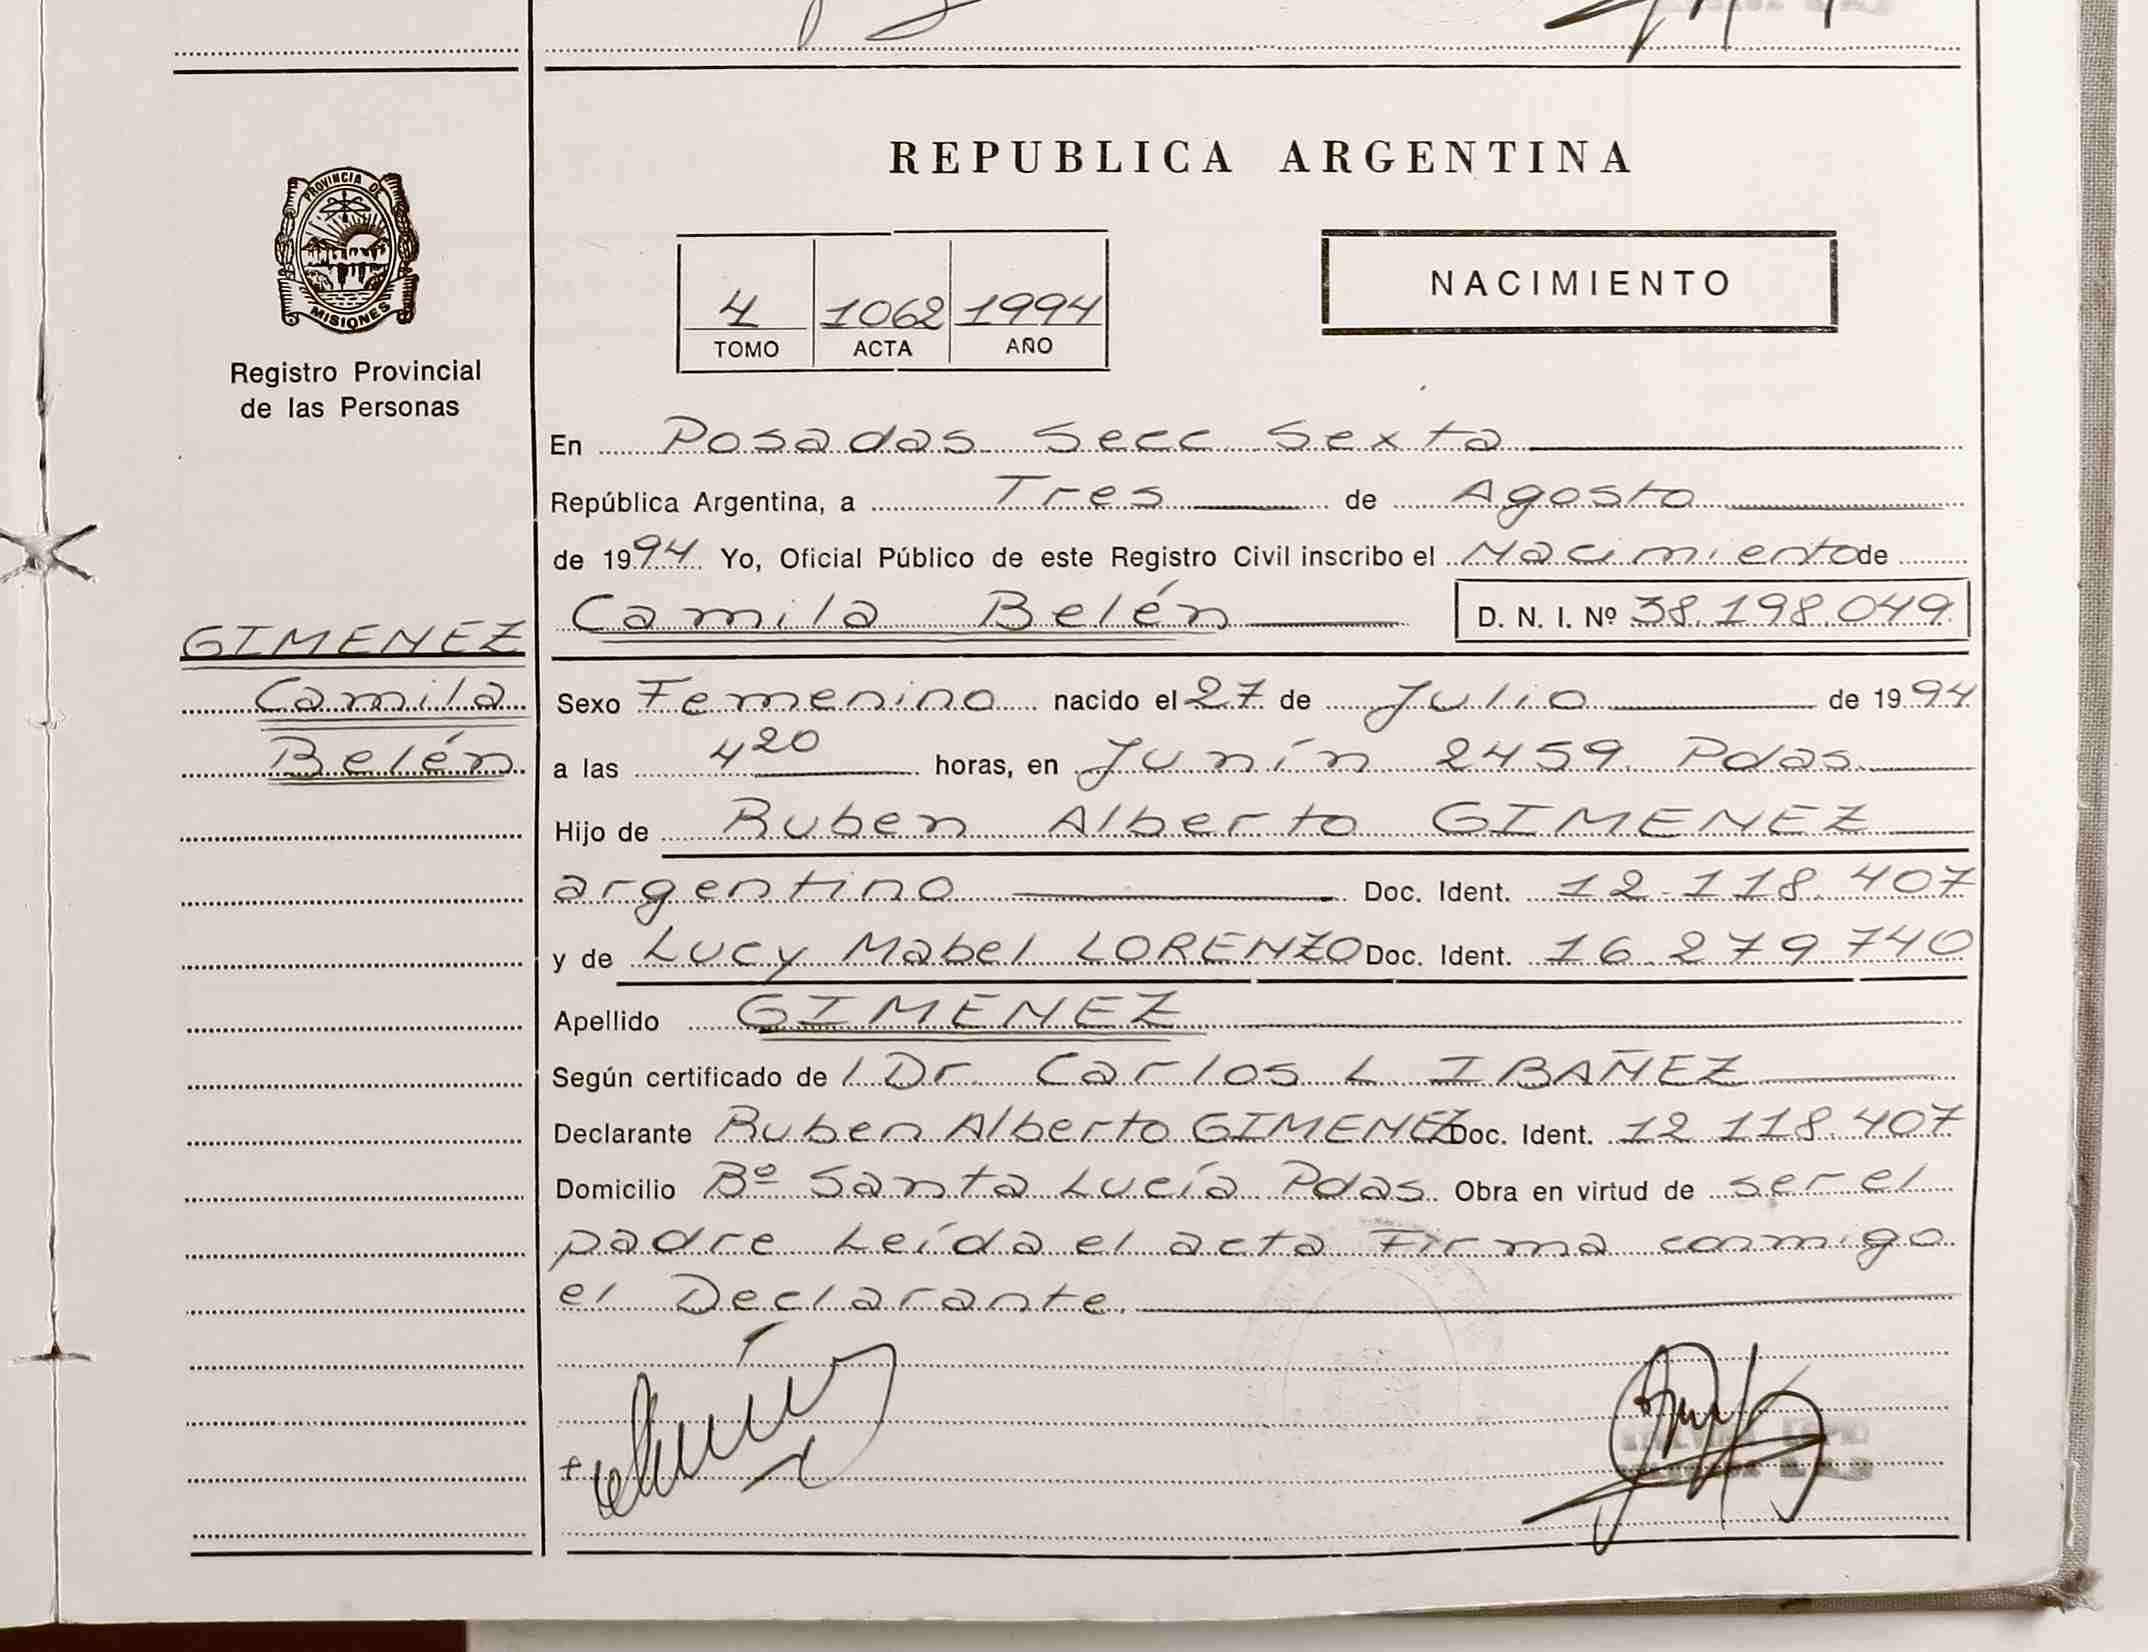 REPUBLICA ARGENTINA
PROVINCIA DE MISIONES
Registro Provincial
de las Personas
4 1062 1994
TOMO ACTA AÑO
NACIMIENTO
En Posadas Secc. Sexta
República Argentina, a Tres de Agosto
de 1994. Yo, Oficial Público de este Registro Civil inscribo el Nacimiento de
GIMENEZ
Camila
Belén
Camila Belén D. N. I. Nº 38.198.049
Sexo Femenino nacido el 27 de Julio de 1994
a las 4 20 horas, en Junín 2459 Pdas.
Hijo de Ruben Alberto GIMENEZ
argentino Doc. Ident. 12.118.407
y de Lucy Mabel LORENZO Doc. Ident. 16.279.740
Apellido GIMENEZ
Según certificado de l Dr. Carlos L IBAÑEZ
Declarante Ruben Alberto GIMENEZ Doc. Ident. 12 118.407
Domicilio Bº Santa Lucía Pdas. Obra en virtud de ser el
padre Leída el acta Firma conmigo
el Declarante.